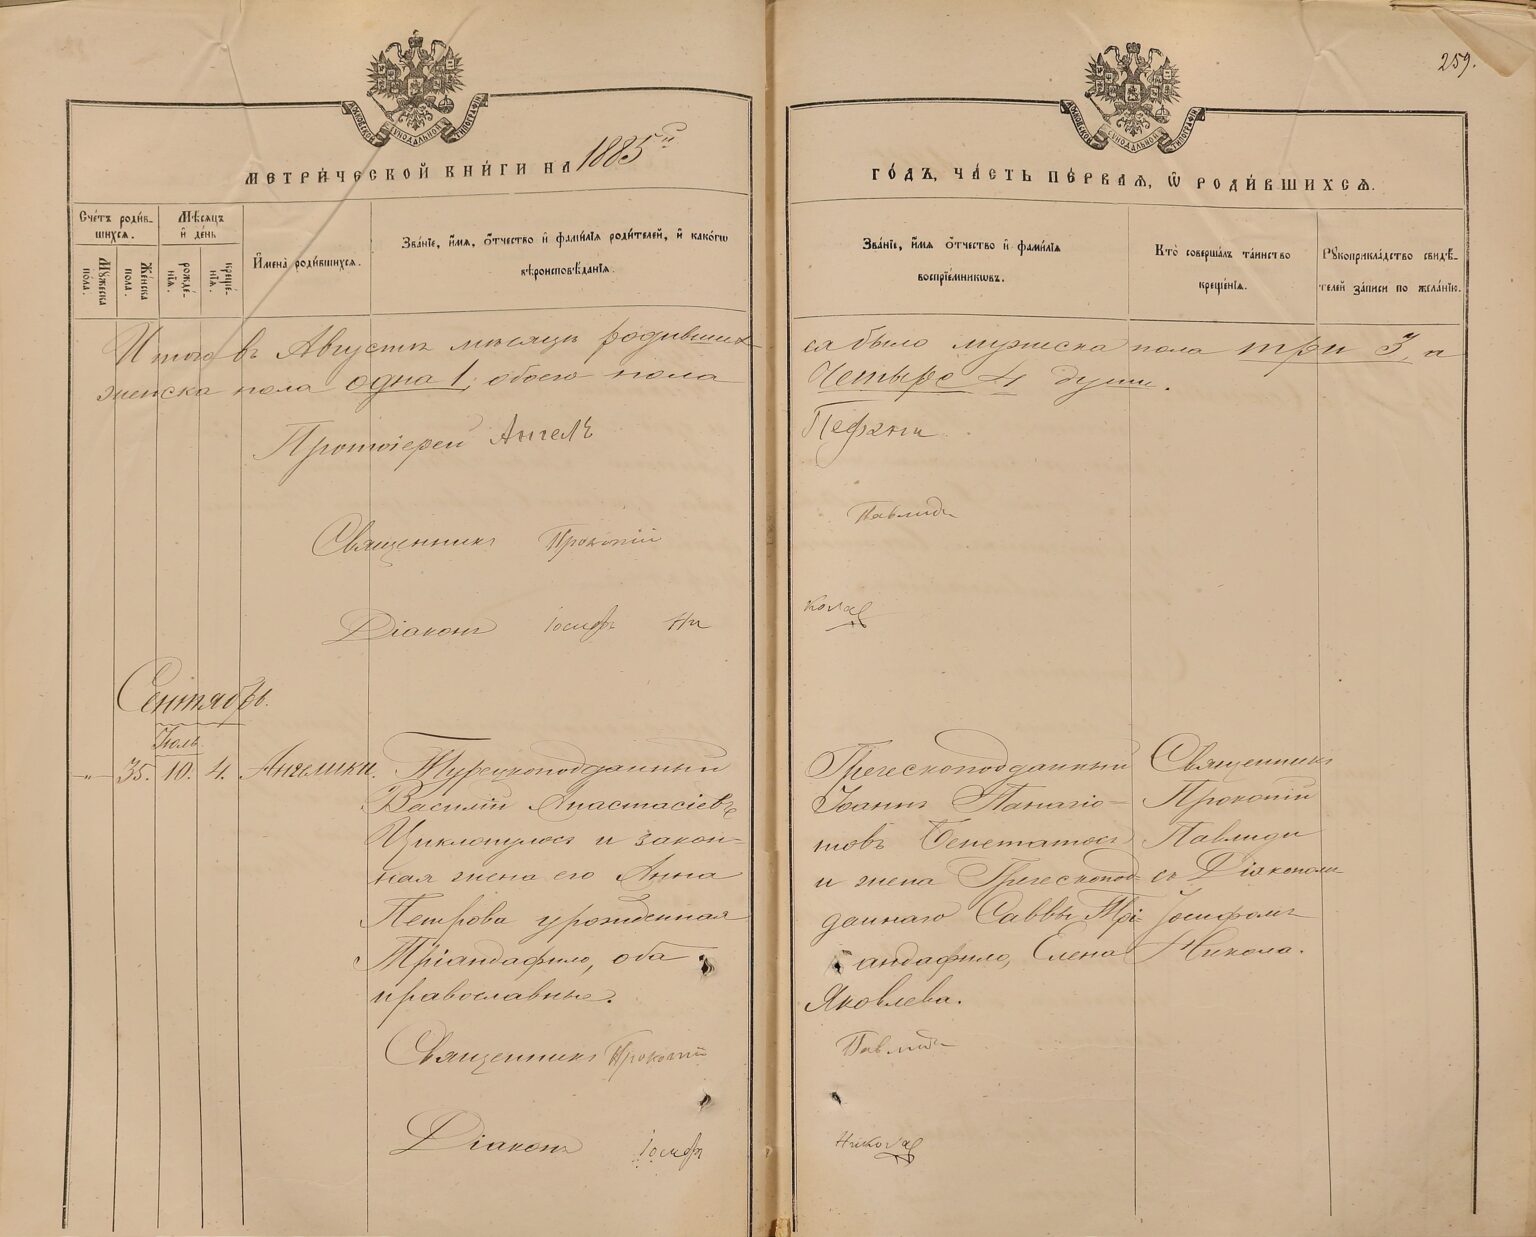 259.
МОСКОВСКОЙ СѴНОДАЛЬНОЙ ТИПОГРАФІИ
МОСКОВСКОЙ СѴНОДАЛЬНОЙ ТИПОГРАФІИ
МЕТРИ́ЧЕСКОЙ КНИ́ГИ НА 1885й
ГО́ДЪ, ЧА́СТЬ ПЕ́РВАѦ, Ѿ РОДИ́ВШИХСѦ.
Сче́тъ роди́в-
шихсѧ.
Мѣ́сѧцъ
и҆ де́нь
Му́жеска
по́ла.
Же́нска
пола.
рожде́-
нїѧ.
креще́-
нїѧ.
И҆мена̀ роди́вшихсѧ.
Зва́нїе, и҆́мѧ, ѻ҆́тчество и҆ фами́лїѧ роди́телей, и҆ како́гѡ
вѣроисповѣ́данїѧ.
Зва́нїе, и҆́мѧ ѻ҆́тчество и҆ фами́лїѧ
воспрїе́мникѡвъ.
Кто̀ соверша́лъ та́инство
креще́нїѧ.
Рꙋкоприкла́дство свидѣ́-
телей за́писи по жела́нїю.
Итого въ Августѣ мѣсяцѣ родивших
ся было мужеска пола три 3, а
женска пола одна 1, обоего пола
Четыре 4 души.
Протоіерей Ангелъ
Пефани
Священникъ Прокопій
Павлиди
Діаконъ Іосифъ Ни
колае
Сентябрь.
Іюль
-"- 35. 10. 4. Ангелики.
Турецкоподданный
Василій Анастасіевъ
Циклопулосъ и закон-
ная жена его Анна
Петрова урожденная
Тріандафило, оба
православные.
Греческоподданный
Іоаннъ Панагіо-
товъ Бенетатосъ
и жена Греческопод-
даннаго Саввы Трі-
андафило, Елена
Яковлева.
Священникъ
Прокопій
Павлиди
съ Діакономъ
Іосифомъ
Никола.
Священникъ Прокопій
Павлиди
Діаконъ Іосифъ
Николае